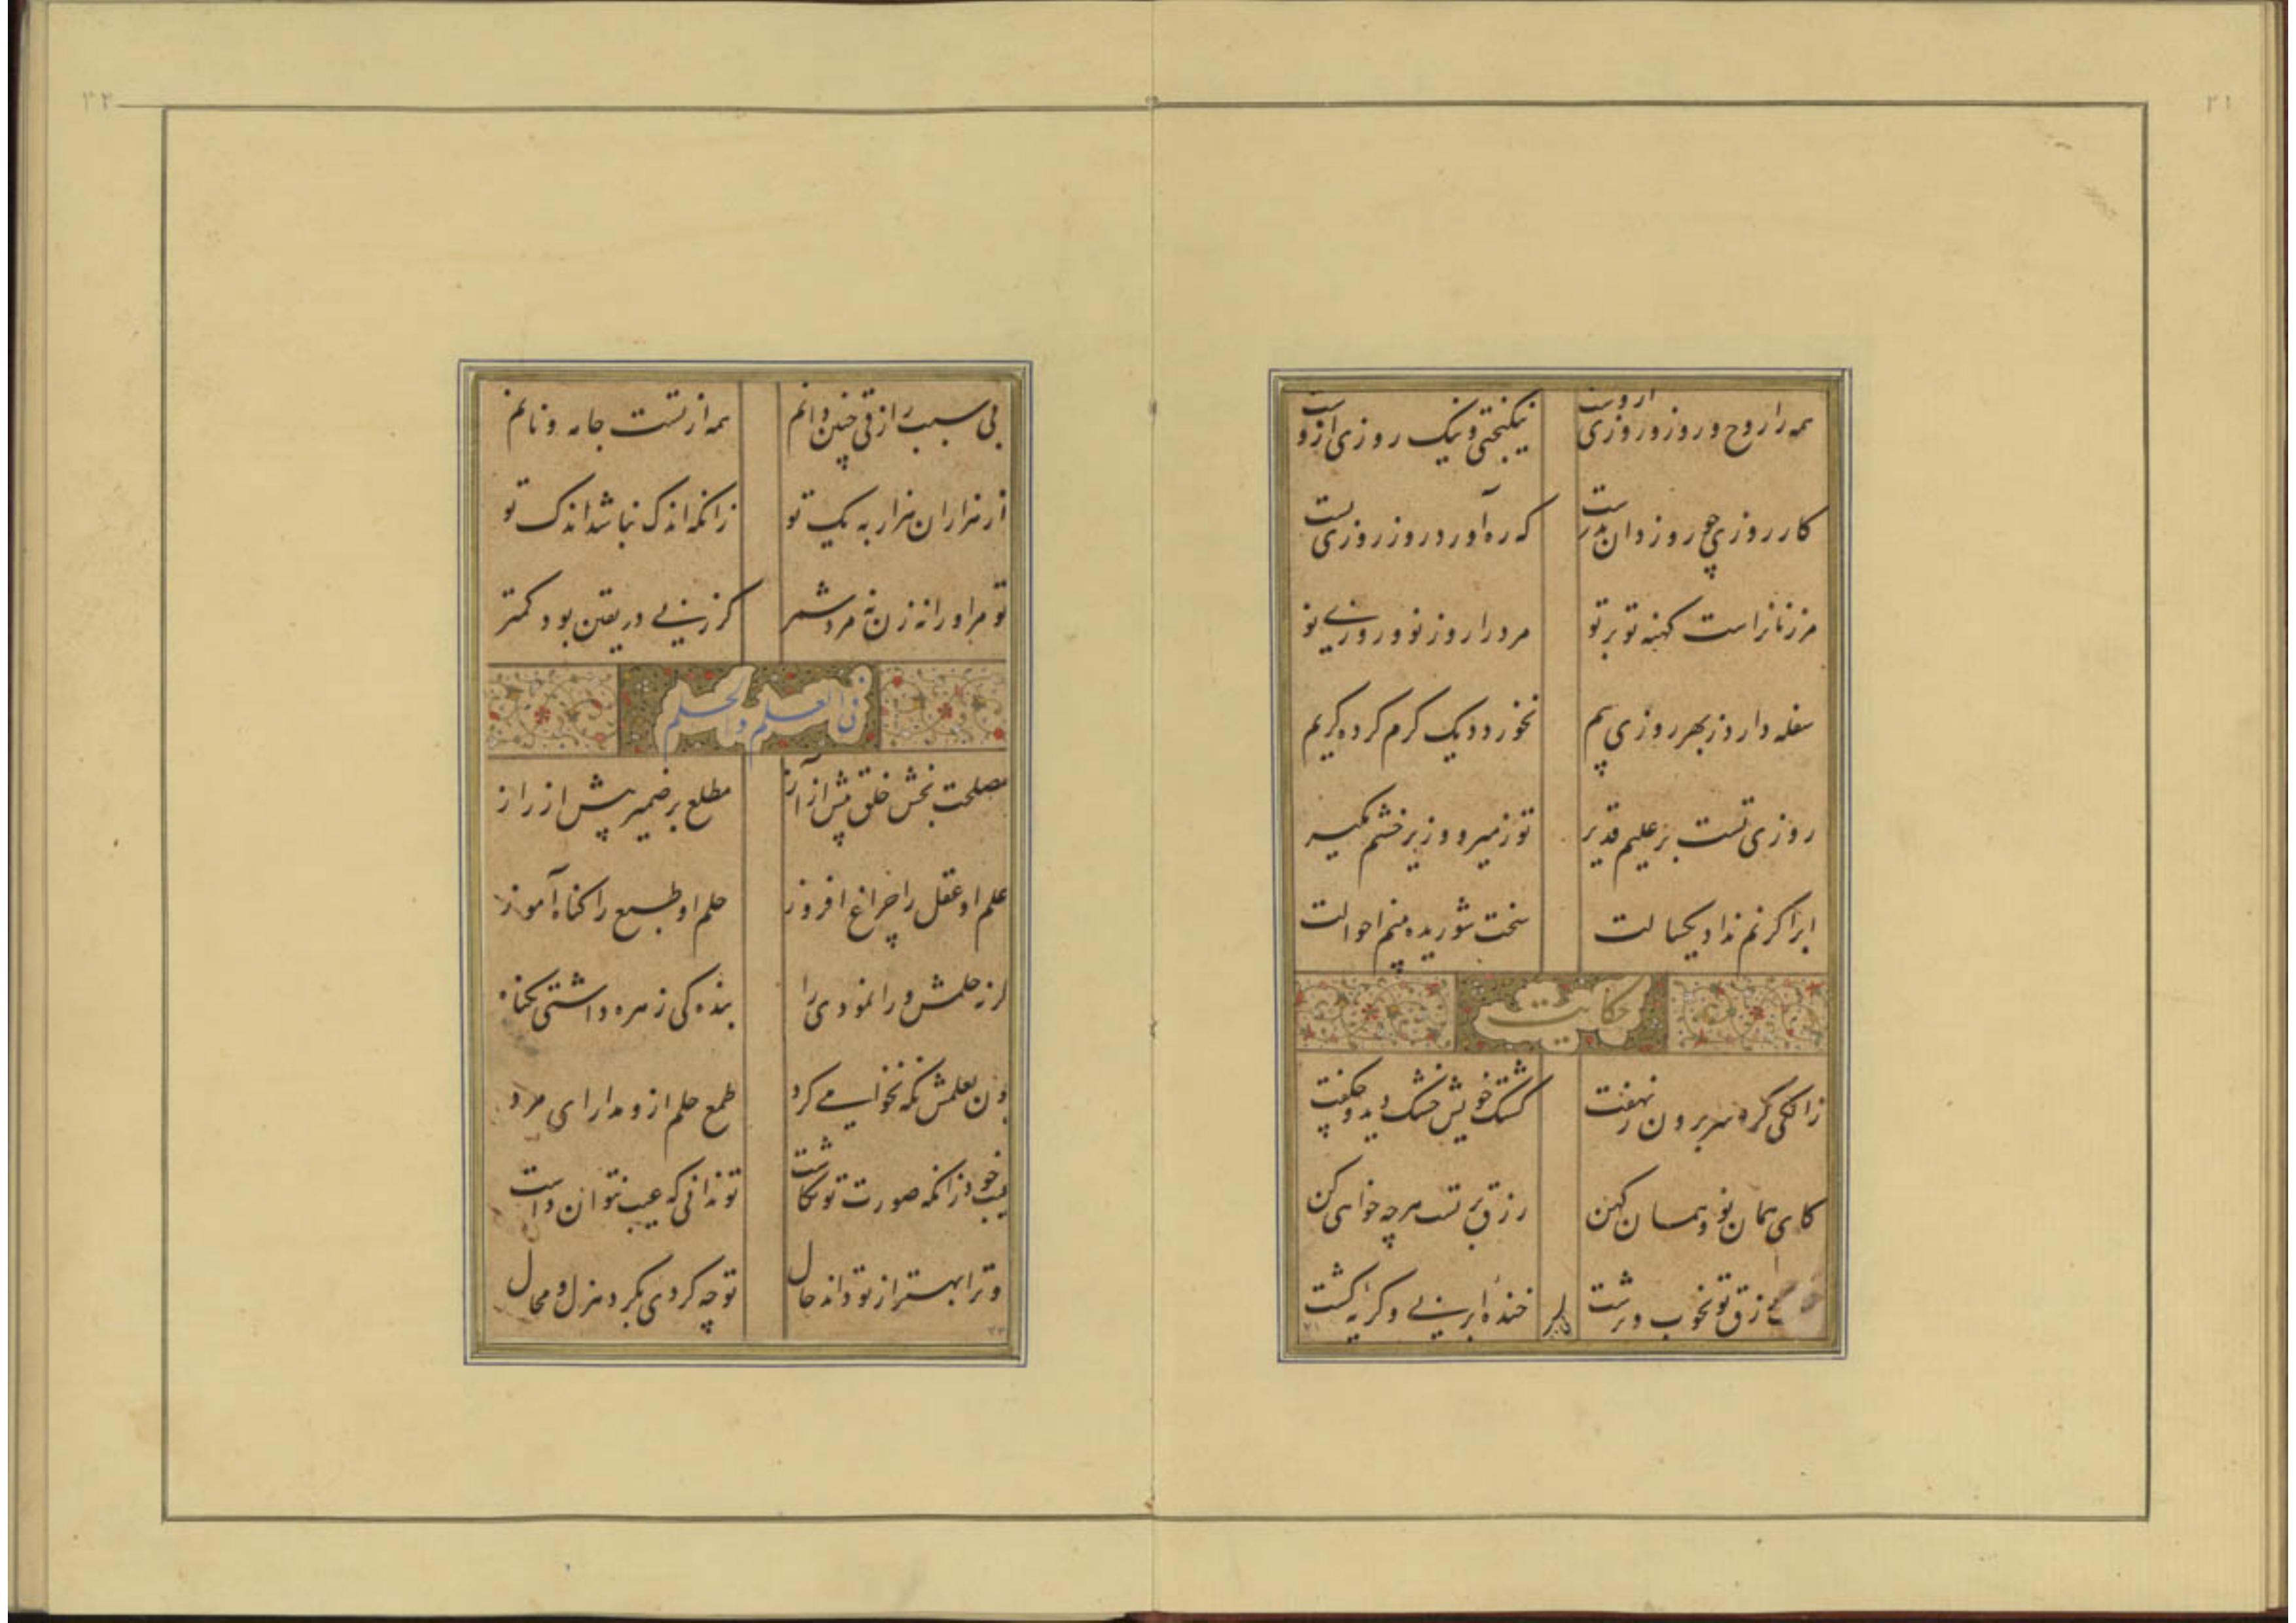 ۲۱
همه را روح و روز و روزی ازوست
نیکبختی و نیک روزی ازوست
کار روزی چو روز دان بدرست
که ره آورد روز روزی تست
مر زنانراست کهنه تو بر تو
مرد را روز نو و روزی نو
سفله دارد ز بهر روزی بیم
نخورد دیک کرم کرده کریم
روزی تست بر علیم قدیر
تو ز میر و وزیر خشم مکیر
ابر اکر نم نداد یکسالت
سخت شوریده بینم احوالت
حکایت
زالکی کرد سر برون ز نهفت
کشتک خویش خشک دید و چکفت
کای همان نو و همان کهن
رزق بر تست هرچه خواهی کن
رزق تو بخوب و زشت
خنده ابر نی و کریه کشت
۲۲
بی سبب رازقی چنین دانم
همه از تست جامه و نانم
از هزاران هزار به یک تو
زانکه اندک نباشد اندک تو
تو مر او را نه زن نه مرد شمر
کز زنی در یقین بود کمتر
فی العلم والحلم
مصلحت بخش خلق پیش از آز
مطلع بر ضمیر پیش از راز
علم او عقل را چراغ افروز
حلم او طبع را کناه آموز
ار نه حلمش ورا نمودی راه
بنده کی زهره داشتی بکناه
چون بعلمش نکه نخواهی کرد
طمع حلم ازو مدار ای مرد
عیب خود زانکه صورت تو نکاشت
تو ندانی که عیب نتوان داشت
و ترا بهتر از تو داند حال
تو چه کردی بکرد هزل و محال